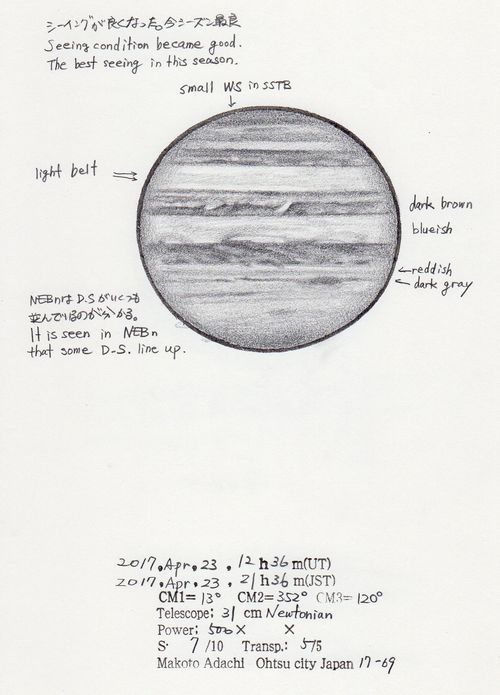 シーイングが良くなった。今シーズン最良
Seeing condition became good.
The best seeing in this season.
small WS in SSTB
light belt
dark brown
blueish
reddish
dark gray
NEBnはD.Sがいくつも
並んでいるのが分かる。
It is seen in NEBn
that some D-S. line up.
2017.Apr.23.12h36m(UT)
2017.Apr.23.21h36m(JST)
CM1=13° CM2=352° CM3=120°
Telescope: 31 cm Newtonian
Power: 500× ×
S· 7/10 Transp.: 5/5
Makoto Adachi Ohtsu city Japan 17-69